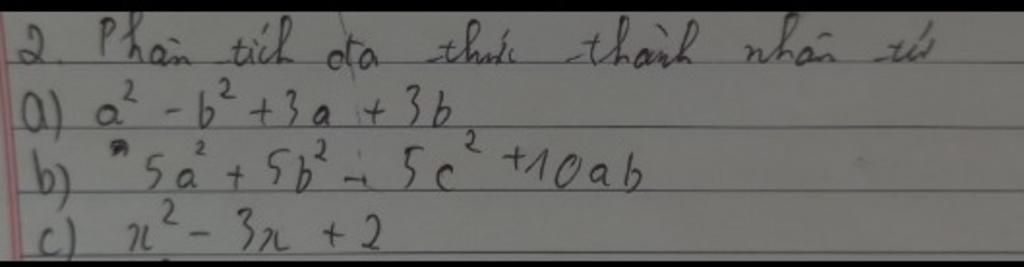 2. Phân tích đa thức thành nhân tử
a) a² - b² + 3a + 3b
b) 5a² + 5b² - 5c² + 10ab
c) x² - 3x + 2